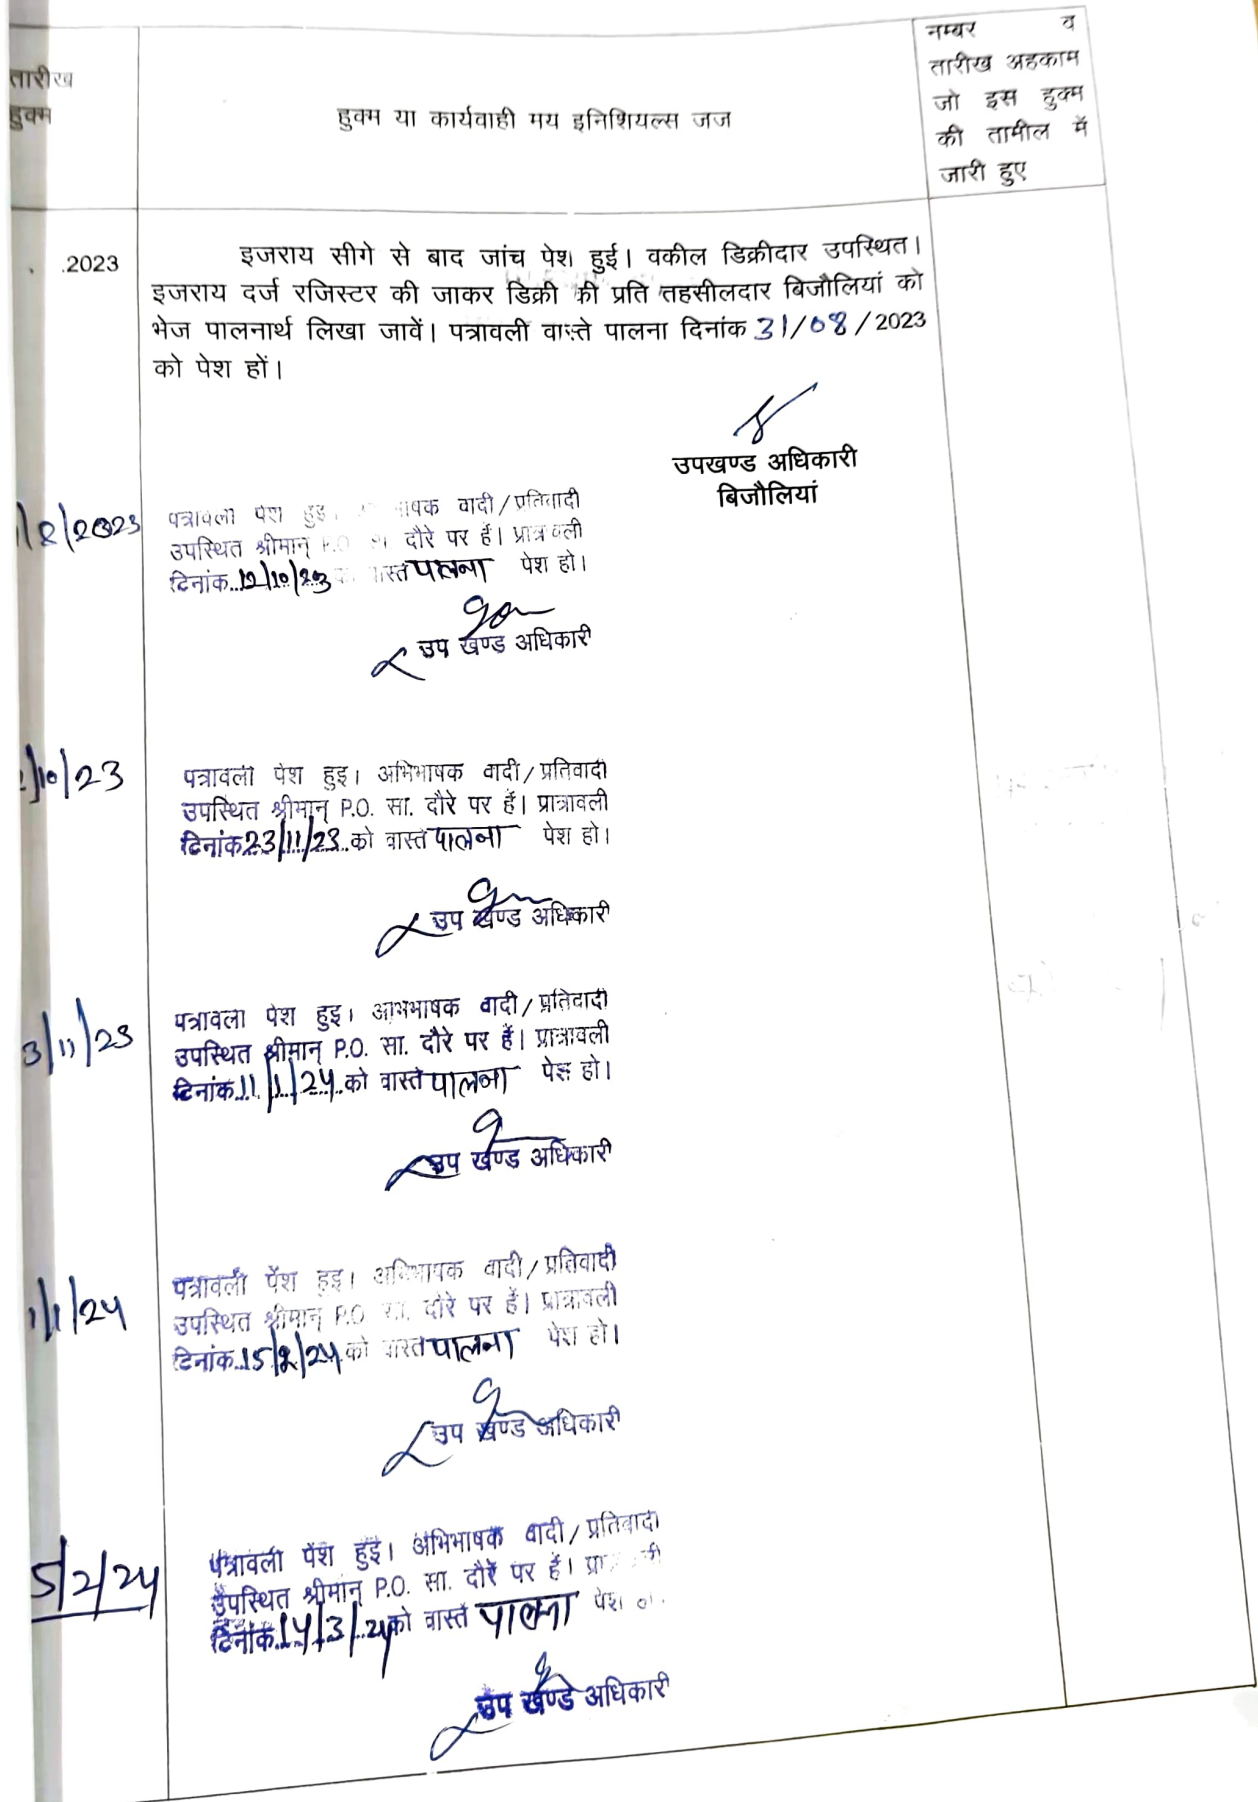 तारीख
हुक्म
हुक्म या कार्यवाही मय इनिशियल्स जज
नम्बर व
तारीख अहकाम
जो इस हुक्म
की तामील में
जारी हुए
.2023
इजराय सीगे से बाद जांच पेश हुई। वकील डिक्रीदार उपस्थित।
इजराय दर्ज रजिस्टर की जाकर डिक्री की प्रति तहसीलदार बिजौलियां को
भेज पालनार्थ लिखा जावें। पत्रावली वास्ते पालना दिनांक 31/08/2023
को पेश हों।
उपखण्ड अधिकारी
बिजौलियां
/8/2023
पत्रावली पेश हुइ। वादी/प्रतिवादी
उपस्थित श्रीमान् P.O. सा. दौरे पर हैं। प्रात्रावली
दिनांक 12/10/23 को वास्ते पालना पेश हो।
उप खण्ड अधिकारी
/10/23
पत्रावली पेश हुइ। अभिभाषक वादी/प्रतिवादी
उपस्थित श्रीमान् P.O. सा. दौरे पर हैं। प्रात्रावली
दिनांक 23/11/23 को वास्ते पालना पेश हो।
उप खण्ड अधिकारी
3/11/23
पत्रावली पेश हुइ। अभिभाषक वादी/प्रतिवादी
उपस्थित श्रीमान् P.O. सा. दौरे पर हैं। प्रात्रावली
दिनांक 11/1/24 को वास्ते पालना पेश हो।
उप खण्ड अधिकारी
1/1/24
पत्रावली पेश हुइ। अभिभाषक वादी/प्रतिवादी
उपस्थित श्रीमान् P.O. सा. दौरे पर हैं। प्रात्रावली
दिनांक 15/2/24 को वास्ते पालना पेश हो।
उप खण्ड अधिकारी
5/2/24
पत्रावली पेश हुइ। अभिभाषक वादी/प्रतिवादी
उपस्थित श्रीमान् P.O. सा. दौरे पर हैं।
दिनांक 14/3/24 को वास्ते पालना पेश
उप खण्ड अधिकारी